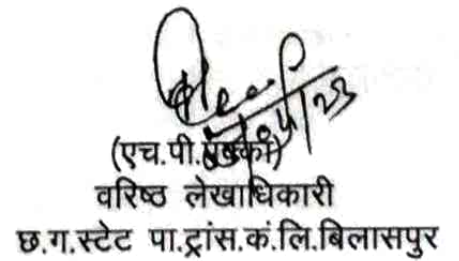 (एच.पी.
वरिष्ठ लेखाधिकारी
छ.ग.स्टेट पा.ट्रांस.कं.लि.बिलासपुर